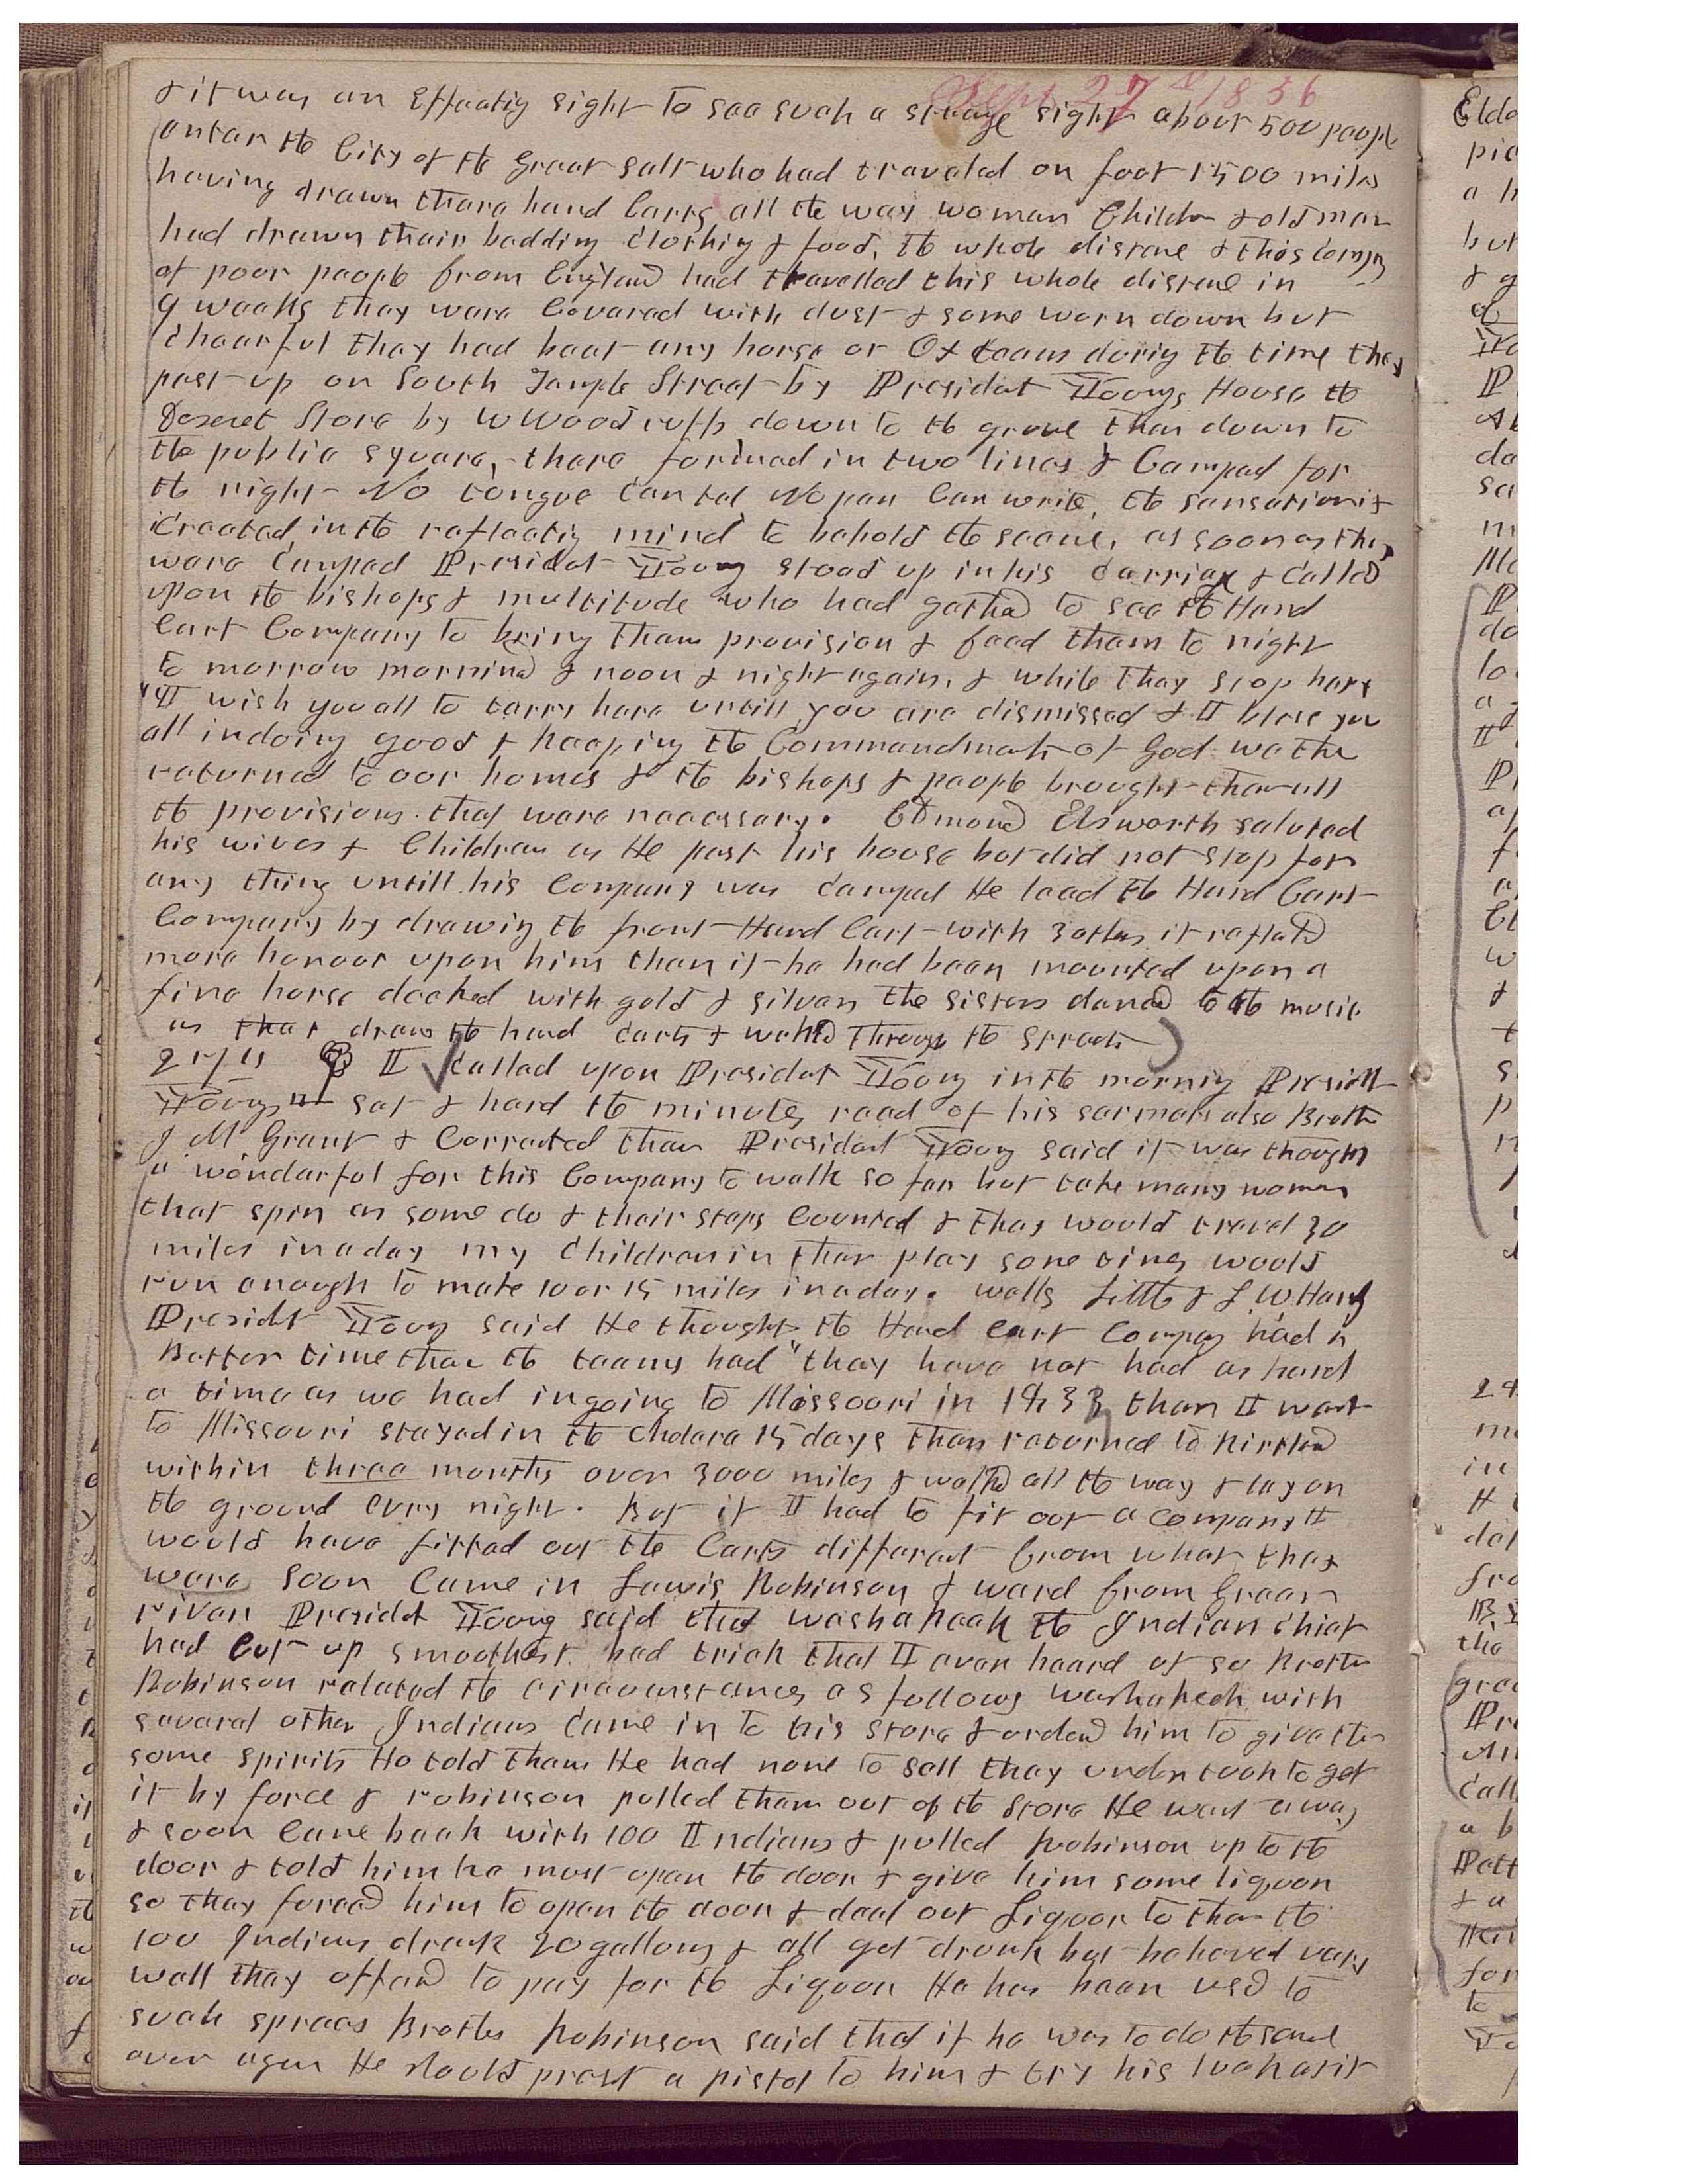 Sept 27th 1856
& it was an Effecting sight to see such a strange sight about 500 people
enter the City of the Great Salt who had traveled on foot 1500 miles
having drawn there hand Carts all the way woman Childn & old men
had drawn their bedding Clothing & food, the whole distane & this Compny
of poor people from England had travelled this whole distane in
9 weeks they were Covered with dust & some worn down but
chearful they had beat any horse or Ox teams during the time they
past up on South Temple Street by President Youngs House the
Deseret Store by W Woodruffs down to the grove then down to
the public square, there formed in two lines & Camped for
the night No tongue Can tel No pen Can write, the sensation it
Created in the reflecting mind to behold the scene, as soon as they
were Camped President Young stood up in his Carriage & Called
upon the bishops & multitude who had gathed to see the Hand
Cart Company to bring them provision & feed them to night
to morrow morning & noon & night again, & while they stop here
"I wish you all to tarry here untill you are dismissed & I bless you
all in doing good & keeping the Commandments of God we then
returned to our homes & the bishops & people brought them all
the provisions that were necessary. Edmond Elsworth saluted
his wives & Children as He past his house but did not stop for
any thing untill his Company was Camped He lead the Hand Cart
Company by drawing the front Hand Cart with 3 others it reflectd
more honour upon him than if he had been mounted upon a
fine horse decked with gold & silver the sisters danced to the music
as they drew the hand Carts & walkd through the streets
27th I Called upon President Young in the morning Presidt
Young sat & hard the minutes read of his sermons also Brother
J M Grant & Corrected them President Young said it was thought
a wonderful for this Company to walk so far but take many women
that spin as some do & their steps Counted & they would travel 30
miles in a day my Children in ther play some times would
run enough to make 10 or 15 miles in a day. wells Little & L. W. Hardy
Presidt Young said He thought the Hand Cart Company had a
Better time than the teams had "they have not had as hard
a time as we had in going to Missouri in 1833 then I went
to Missouri stayed in the Cholera 15 days then returned to Kirtland
within three months over 3000 miles & walkd all the way & lay on
the ground evry night. But if I had to fit out a Company I
would have fitted out the Carts different from what they
were soon Came in Lewis Robinson & ward from Green
river Presidet Young said that washakeek the Indian Chief
had Cut up smoothest bad trick that I ever heard of so Brother
Robinson related the circumstances as follows washakeek with
several other Indians Came in to his store & orderd him to give them
some spirits He told them He had none to sell they undertook to get
it by force & robinson pulled them out of the store He went away
& soon Came back with 100 Indians & pulled Robinson up to the
door & told him he must open the door & give him some liquor
so they forced him to open the door & deal out Liquor to them the
100 Indians drank 20 gallons & all got drunk but behaved very
well they offerd to pay for the Liquor He has been used to
such sprees Brother Robinson said that if he was to do the same
over agen He should present a pistol to him & try his luck as it